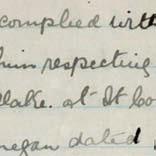 complied with
him respecting
Lake. at St Co
negan dated